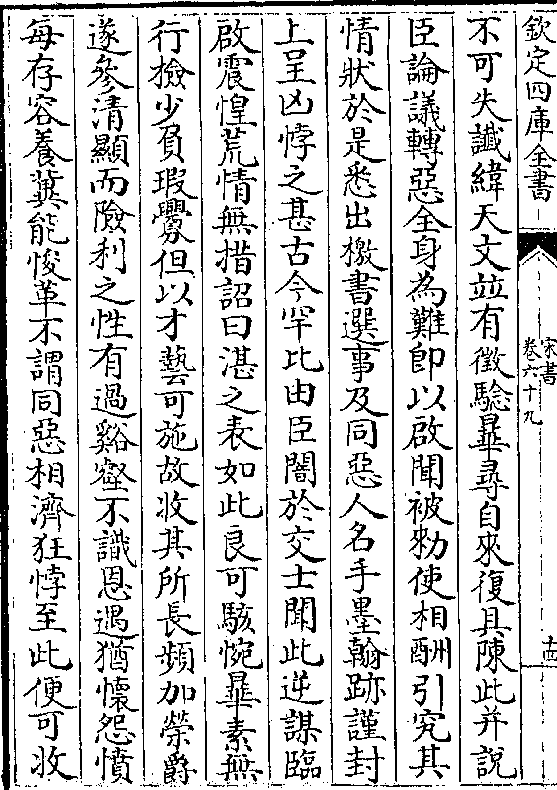 欽定四庫全書
宋書
卷六十九
十四
不可失讖緯天文並有徵驗曄尋自來復具陳此并說
臣論議轉惡全身為難即以啟聞被勑使相酬引究其
情狀於是悉出檄書選事及同惡人名手墨翰跡謹封
上呈凶悖之甚古今罕比由臣闇於交士聞此逆謀臨
啟震惶荒情無措詔曰湛之表如此良可駭惋曄素無
行檢少負瑕舋但以才藝可施故收其所長頻加榮爵
遂參清顯而險利之性有過谿壑不識恩遇猶懷怨憤
每存容養冀能悛革不謂同惡相濟狂悖至此便可收